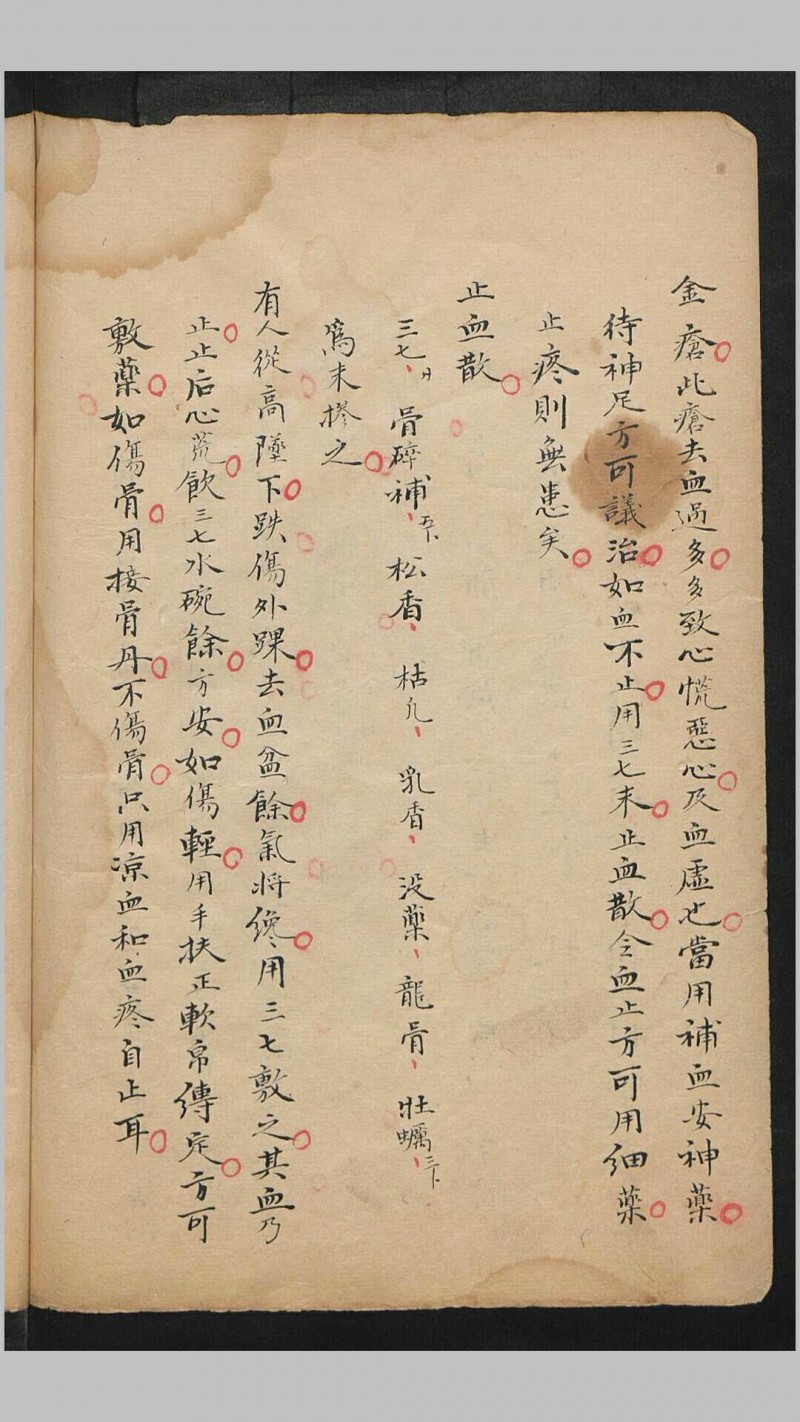 金瘡此瘡去血過多多致心慌惡心及血虛也當用補血安神藥
待神足方可議治如血不止用三七末止血散令血止方可用細藥
止疼則無患矣
止血散
三七 骨碎補 松香 枯凡 乳香 没藥 龍骨 牡蠣
為末摻之
有人從高墜下跌傷外踝去血盆餘氣將纔用三七敷之其血乃
止止后心荒飲三七水碗餘方安如傷輕用手扶正軟帛縛定方可
敷藥如傷骨用接骨丹不傷骨只用凉血和血疼自止耳